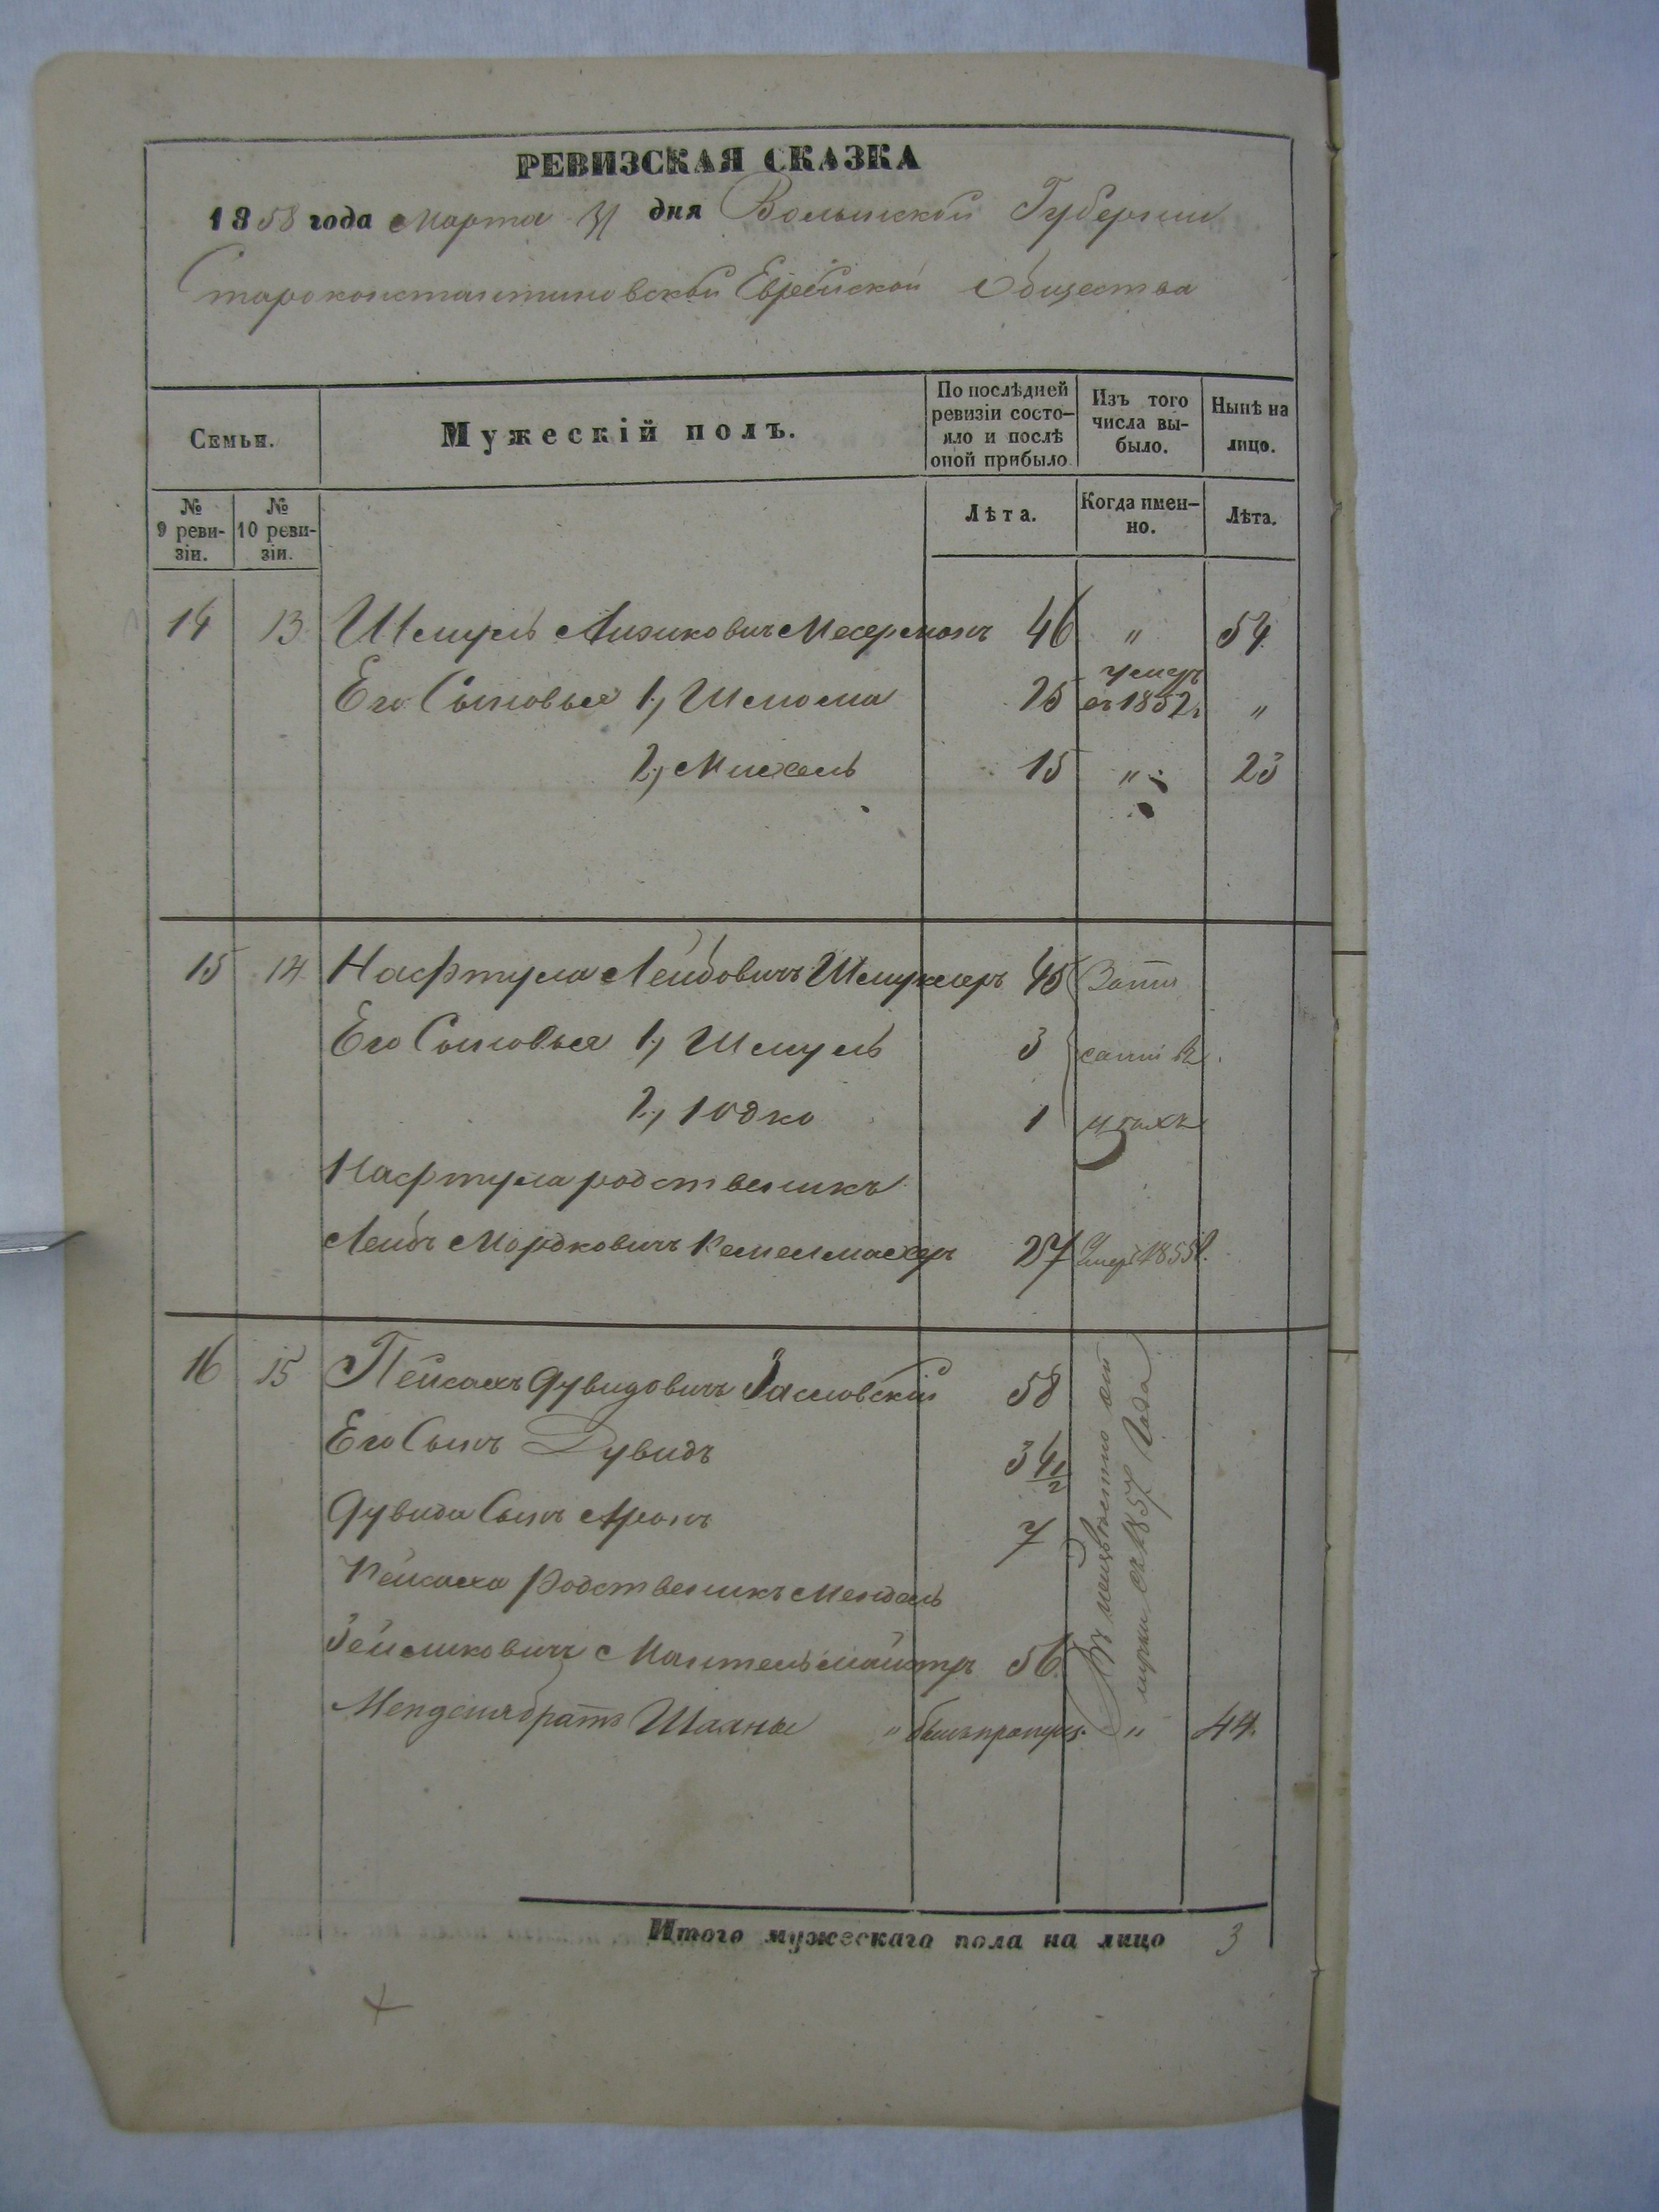 РЕВИЗСКАЯ СКАЗКА
1858 года Марта 31 дня Волынской Губернии
Староконстантиновской Еврейской Общества
Семьи.
Мужескій полъ.
По послѣдней ревизіи состо-яло и послѣ оной прибыло.
Изъ того числа вы-было.
Нынѣ на лицо.
№ 9 реви-зіи.
№ 10 реви-зіи.
Лѣта.
Когда имен-но.
Лѣта.
14 13 Шмуль Айзиковичъ Месерманъ 46 " 54.
Его Сыновья 1, Шлома 25 умеръ въ 1852 г "
2, Михель 15 " 23
15 14 Нафтула Лейбовичъ Шмуклеръ 45
Его Сыновья 1, Шмуль 3
2, Іодко 1
Нафтула родственикъ
Лейбъ Мордковичъ 27 умеръ 1855 г.
16 15 Пейсахъ Дувидовичъ Заславскій 58
Его Сынъ Дувидъ 34 1/2
Дувида Сынъ Аронъ 7
Пейсаха Родственикъ Мендель
Зейликовичъ Мантельмайстръ 56.
Менделя братъ Шаяны " былъ пропущ. " 44.
1857 года
Итого мужескаго пола на лицо 3